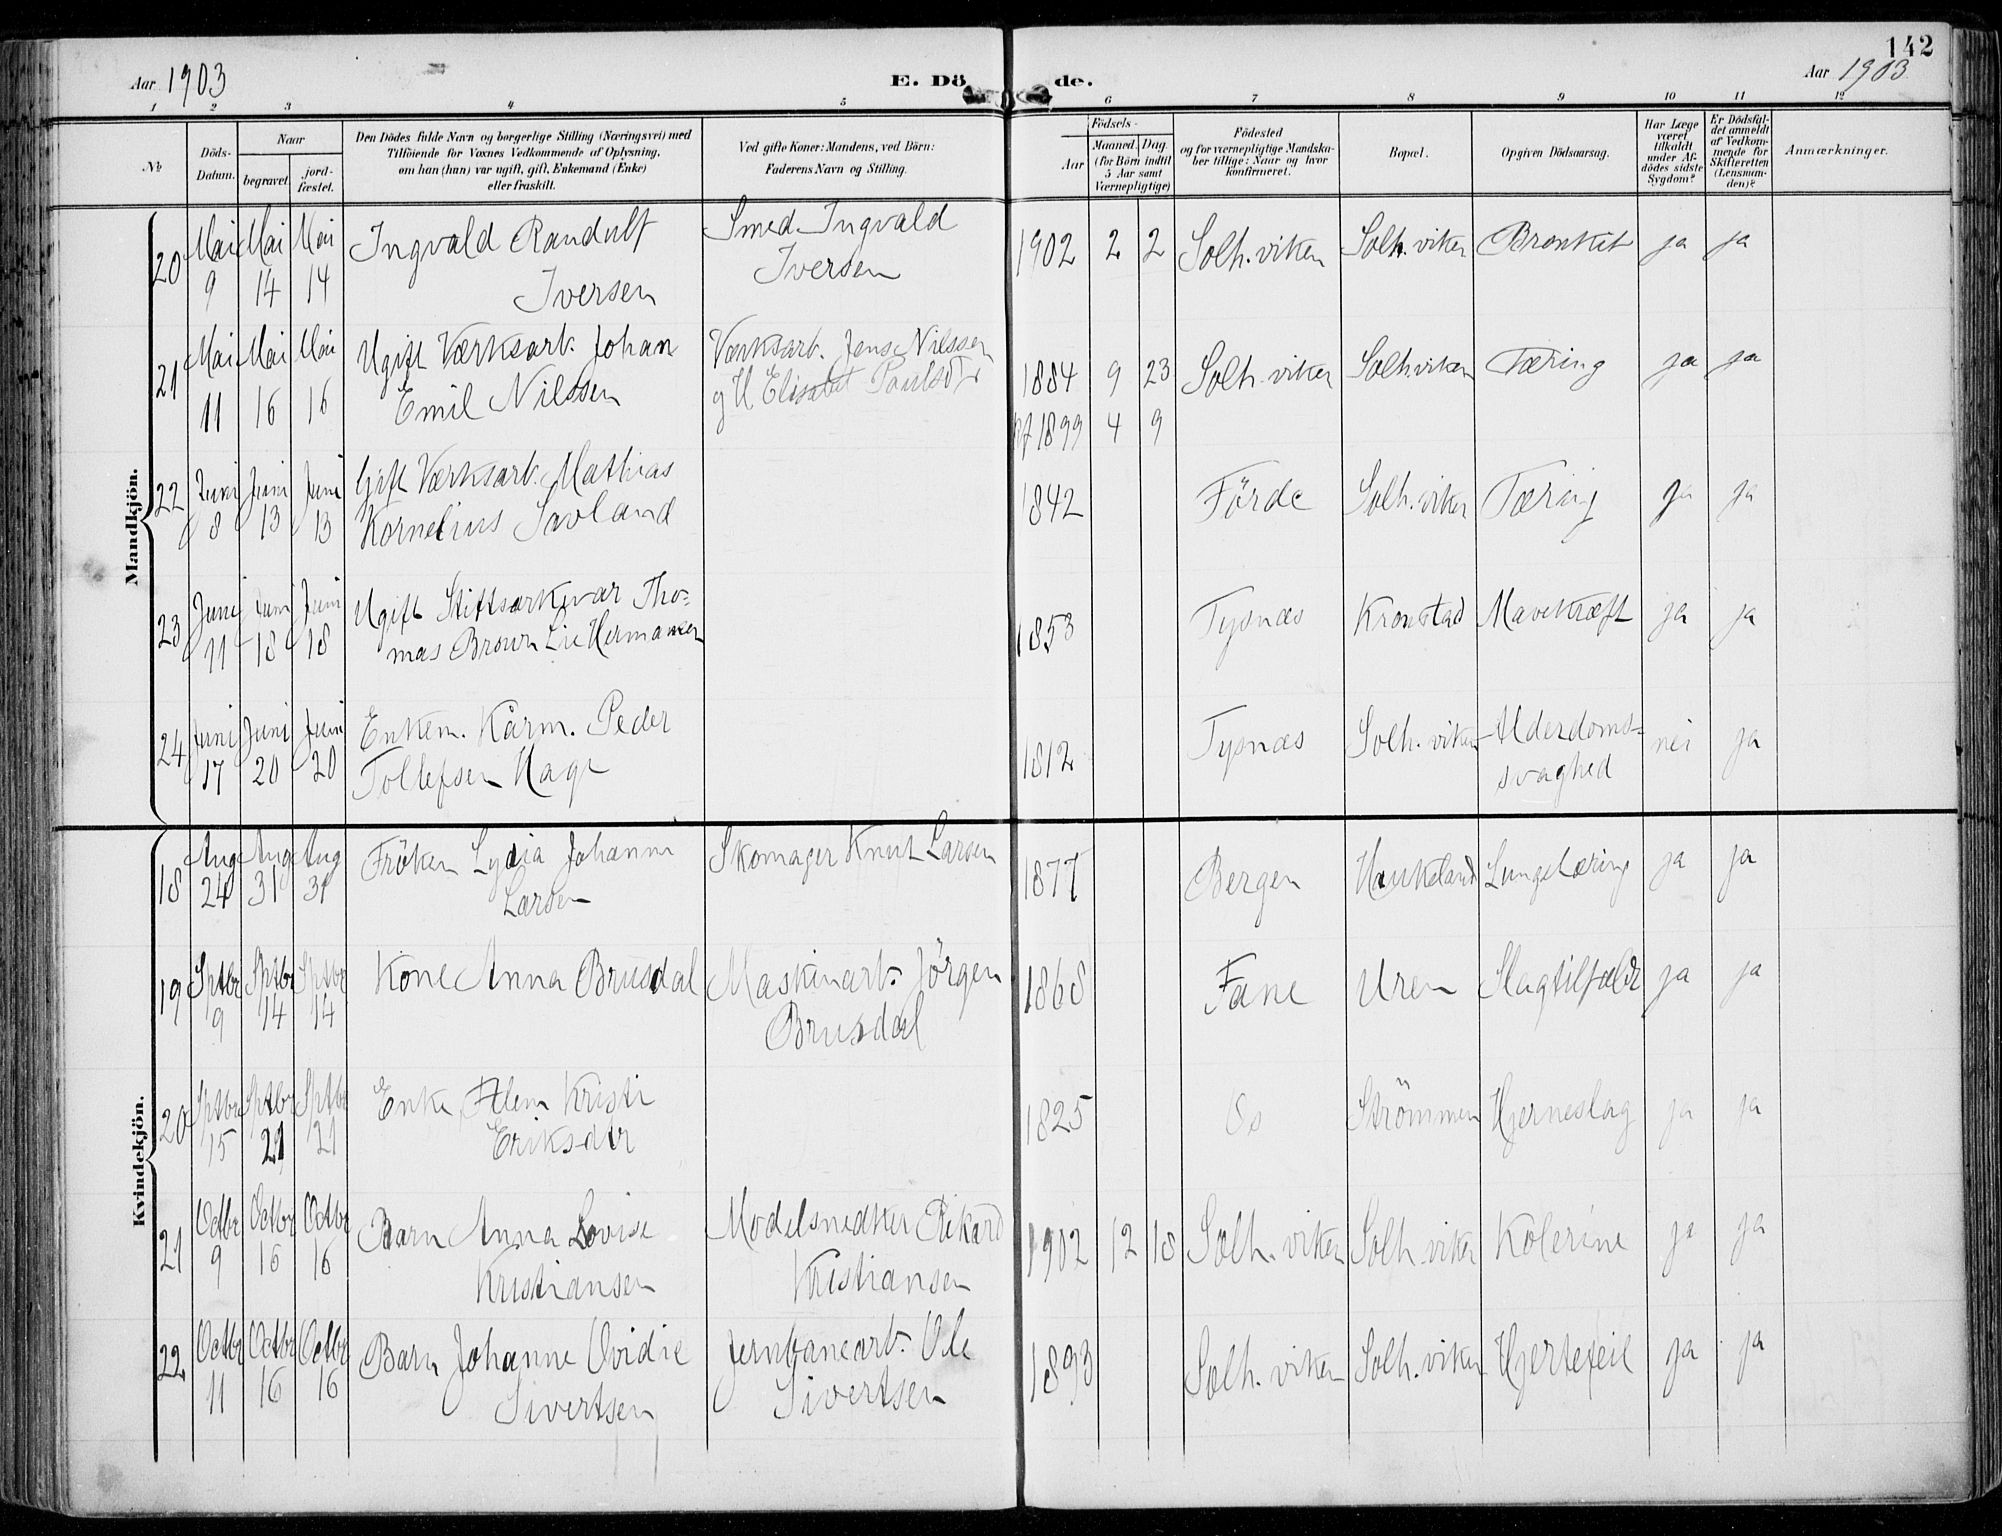 142
Aar 1903
E. Dö
de.
Aar 1903
1 2 3 4 5 6 7 8 9 10 11 12
№
Döds-
Datum.
Naar
begravet.
jord-
fæstet.
Den Dödes fulde Navn og borgerlige Stilling (Næringsvei) med
Tilföiende for Voxnes Vedkommende af Oplysning,
om han (hun) var ugift, gift, Enkemand (Enke)
eller fraskilt.
Ved gifte Koner: Mandens, ved Börn:
Faderens Navn og Stilling.
Födsels-
Aar
Maaned. Dag.
(for Börn indtil
5 Aar samt
Værnepligtige)
Födested
og for værnepligtige Mandska-
ber tillige: Naar og hvor
konfirmeret.
Bopæl.
Opgiven Dödsaarsag.
Har Læge
været
tilkaldt
under Af-
dödes sidste
Sygdom?
Er Dödsfal-
det anmeldt
af Vedkom-
mende for
Skifteretten
(Lensman-
den)?
Anmærkninger.
Mandkjön.
20 Mai 9 Mai 14 Mai 14 Ingvald Randulf
Iversen
Smed Ingvald
Iversen
1902 2 2 Solh. viken Solh. viken Bronkit ja ja
21 Mai 11 Mai 16 Mai 16 Ugift Værksarb. Johan
Emil Nilssen
Værksarb. Jens Nilssen
og H Elisabet Paulsdtr
1884 9 23 Solh. viken Solh. viken Tæring ja ja
1899 4 9
22 Juni 8 Juni 13 Juni 13 Gift Værksarb. Mathias
Kornelius Savland
1842 Förde Solh. viken Tæring ja ja
23 Juni 11 Juni 18 Juni 18 Ugift Stiftsarkivar Tho-
mas Brown Lie Hermansen
1853 Tysnæs Kronstad Mavekræft ja ja
24 Juni 17 Juni 20 Juni 20 Enkem. Kårm. Peder
Tollefsen Hage
1812 Tysnæs Solh. viken Alderdoms-
svaghed nei ja
Kvindekjön.
18 Aug 24 Aug 31 Aug 31 Fröken Lydia Johanne
Larsen
Skomager Knut Larsen
1877 Bergen Haukeland Lungetæring ja ja
19 Sptbr 9 Sptbr 14 Sptbr 14 Kone Anna Brusdal
Maskinarb. Jörgen
Brusdal
1868 Fane Uren Slagtilfælde ja ja
20 Sptbr 15 Sptbr 21 Sptbr 21 Enke, Alem Kristi
Eriksdtr
1825 Os Strömmen Hjerneslag ja ja
21 Octbr 9 Octbr 16 Octbr 16 Barn Anna Lovise
Kristiansen
Modelsnedker Rikard
Kristiansen
1902 12 18 Solh. viken Solh. viken Kolerine ja ja
22 Octbr 11 Octbr 16 Octbr 16 Barn Johanne Ovidie
Sivertsen
Jernbanearb. Ole
Sivertsen
1893 Solh. viken Solh. viken Hjertefeil ja ja